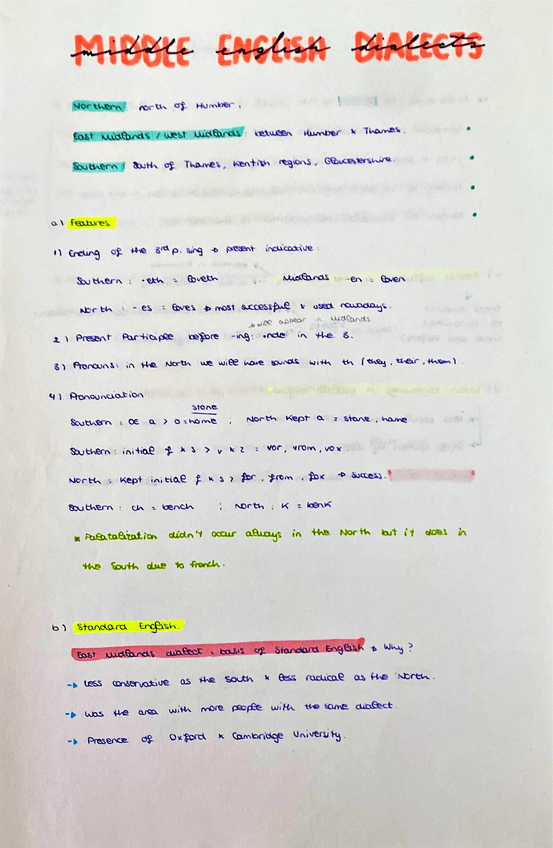 MIDDLE ENGLISH DIALECTS
middle english dialects
Northern / north of Humber.
East Midlands / West Midlands / between Humber & Thames.
Southern / South of Thames, Kentish regions, Gloucestershire.
a) Features
1) Ending of the 3rd p. sing → present indicative:
Southern: -eth = loveth Midlands -en = loven
North: -es = loves → most successful & used nowadays.
→ will appear in Midlands
2) Present Participle before -ing: -nde in the 3.
3) Pronouns: in the North we will have sounds with th (they, their, them).
4) Pronounciation.
stone
Southern: OE a > o = home, North kept a = stane, hame
Southern: initial f & s > v & z = vor, vrom, vox
North: kept initial f & s > for, from, fox → success.
Southern: ch = bench ; North: K = benk
* Palatalization didn't occur always in the North but it does in
the South due to french.
b) Standard English.
East Midlands dialect = basis of Standard English → Why?
→ Less conservative as the South & less radical as the North.
→ Was the area with more people with the same dialect.
→ Presence of Oxford & Cambridge University.